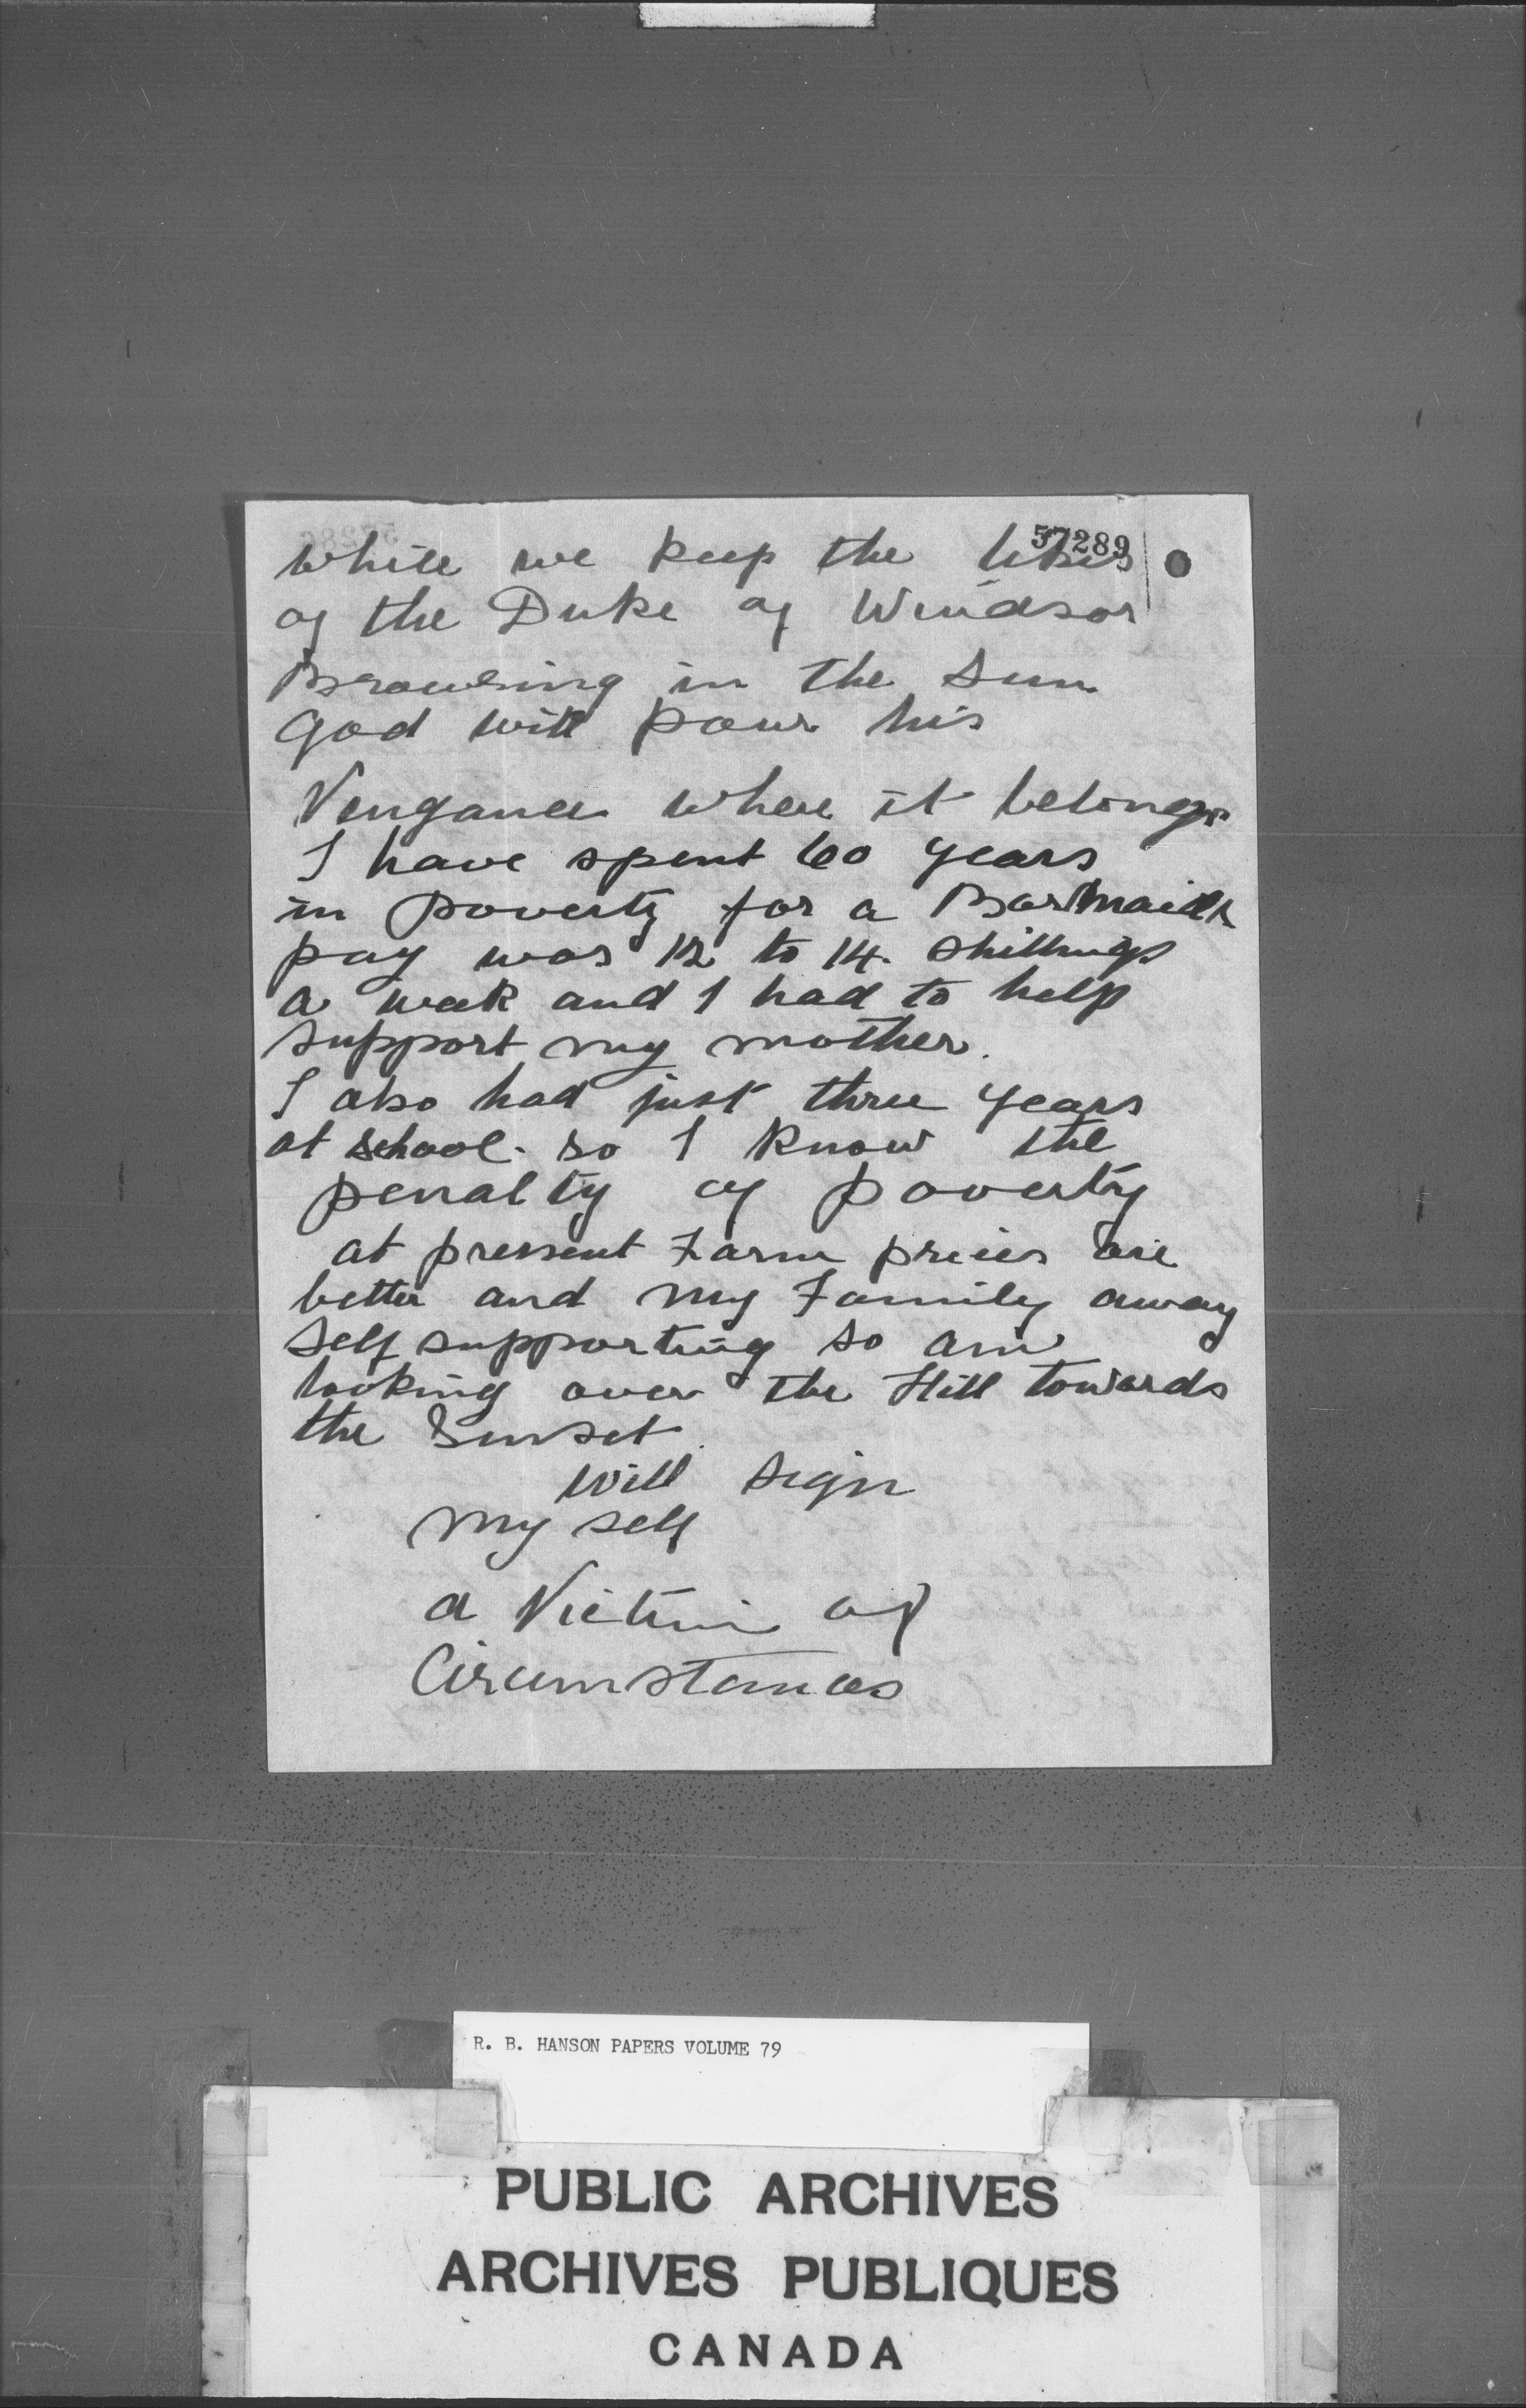 57289
while we keep the likes
of the Duke of Windsor
Browsing in the Sun
God will pour his
Vengance where it belongs
I have spent 60 years
in poverty for a Barmaids
pay was 12 to 14. shillings
a week and I had to help
support my mother.
I also had just three years
at school. so I know the
penalty of poverty
at pressent Farm prices are
better and my Family away
self supporting so am
looking over the Hill towards
the Sunset.
will sign
my self
a Victim of
Circumstances
R. B. HANSON PAPERS VOLUME 79
PUBLIC ARCHIVES
ARCHIVES PUBLIQUES
CANADA